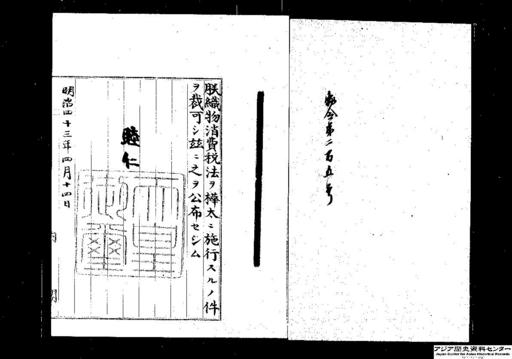 勅令第二百五号
朕織物消費税法ヲ樺太ニ施行スルノ件
ヲ裁可シ玆ニ之ヲ公布セシム
睦仁
明治四十三年四月十四日
内
アジア歴史資料センター
Japan Center for Asian Historical Records